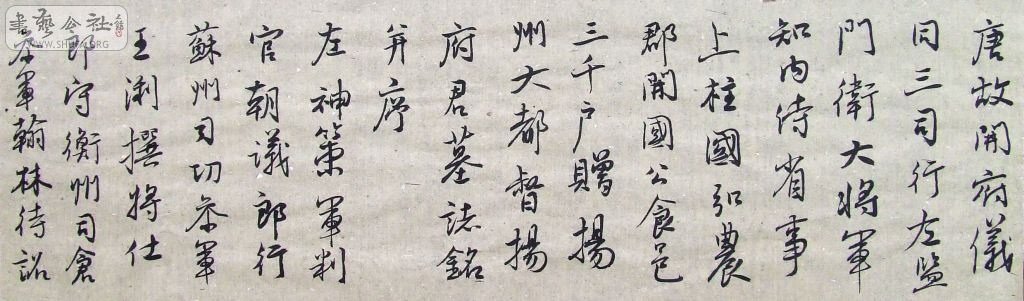 唐故開府儀
同三司行左監
門衛大將軍
知内侍省事
上柱國弘農
郡開國公食邑
三千户贈揚
州大都督揚
府君墓誌銘
并序
左神策軍判
官朝議郎行
蘇州司功参軍
王渕撰將仕
郎守衡州司倉
参軍翰林待詔
書藝公社
WWW.SHUFA.ORG